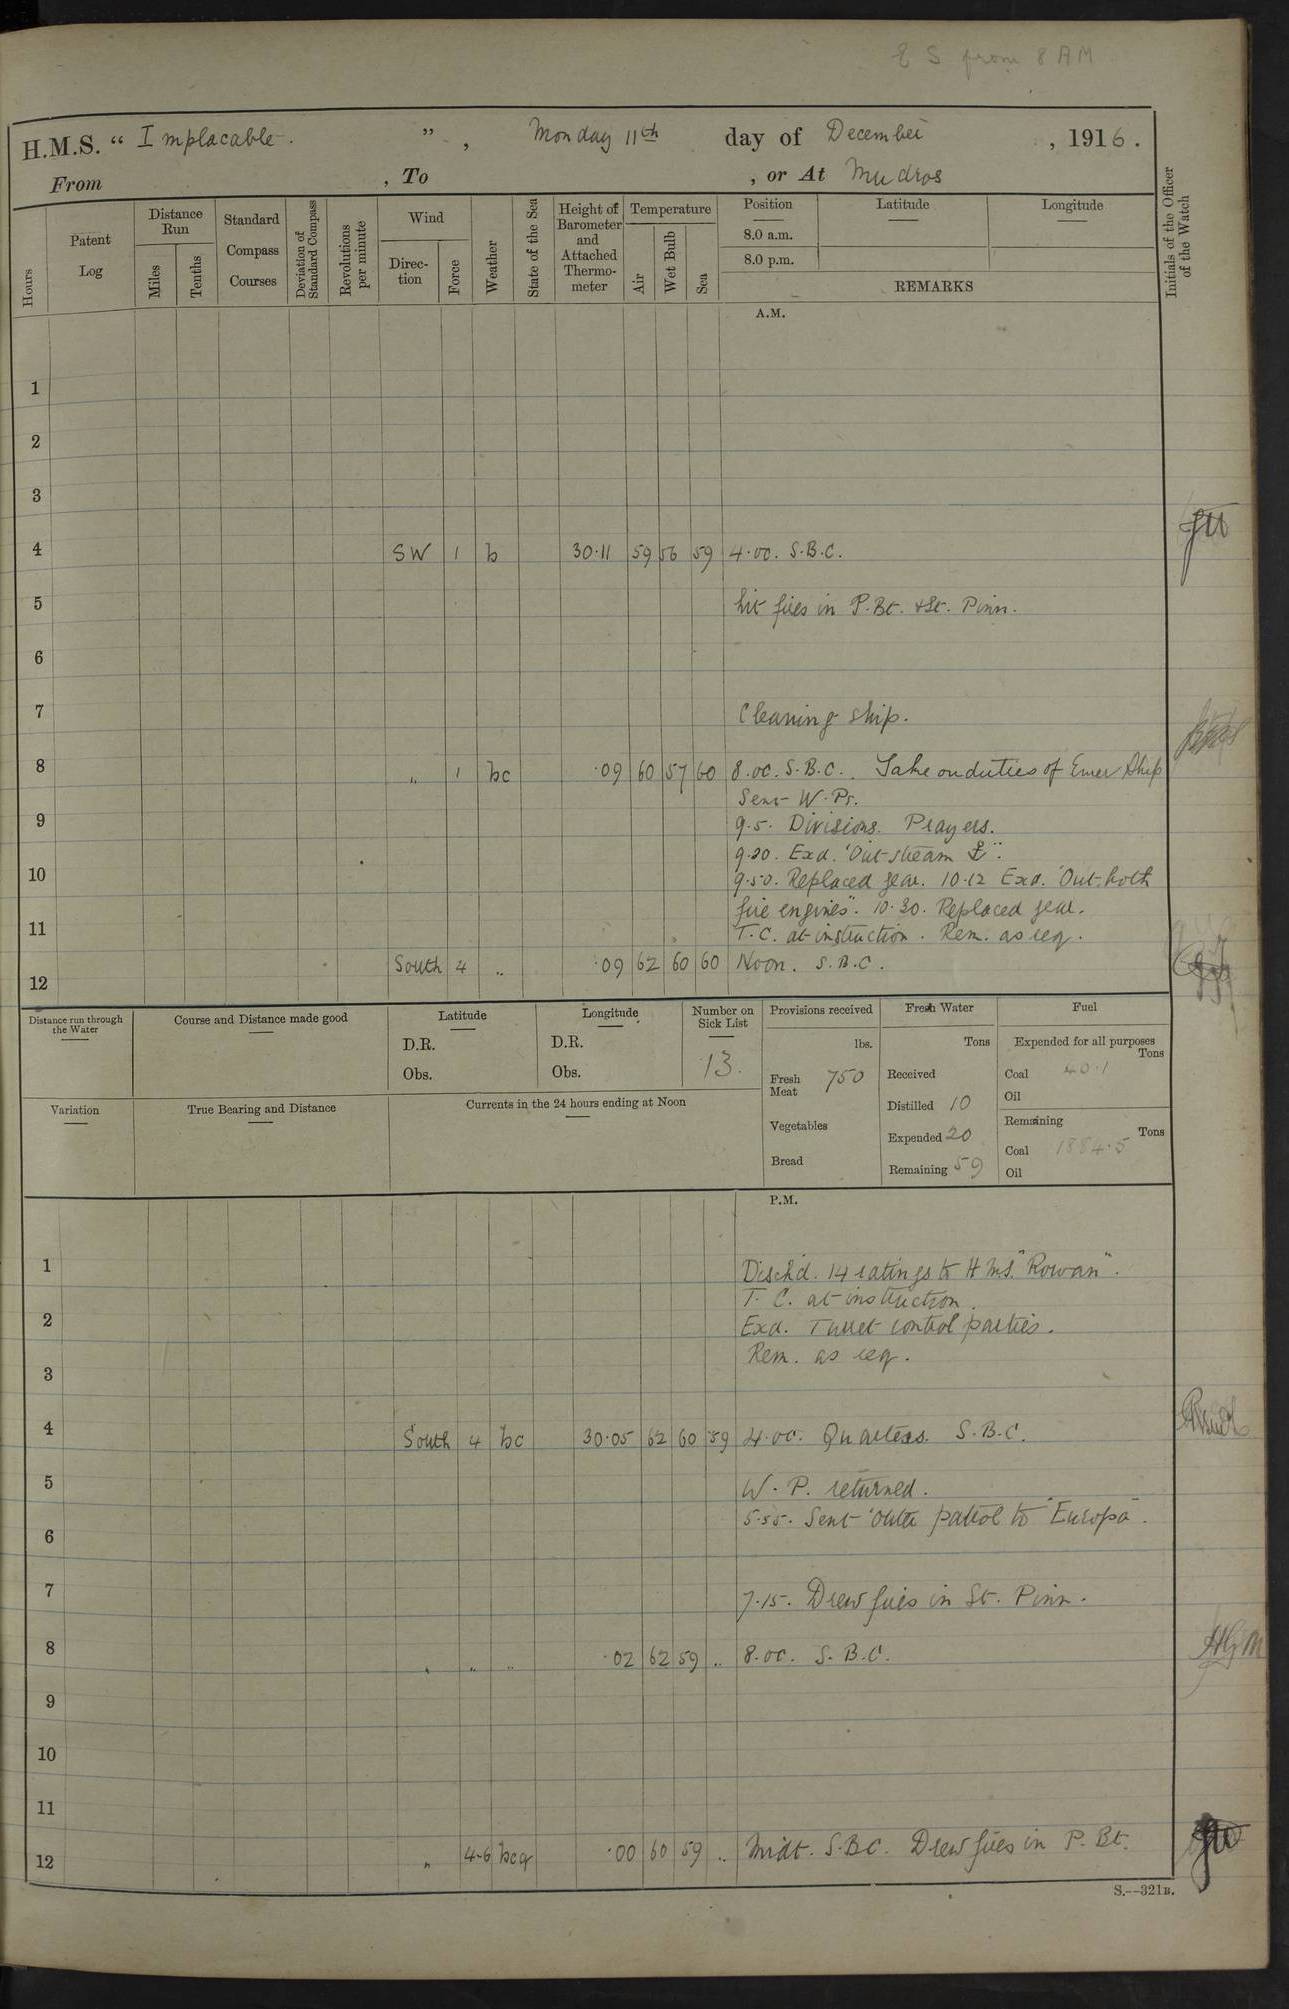 E S from 8 AM
H.M.S. “ Implacable. ”, Monday 11th day of December, 1916.
From , To , or At Mudros
Hours
Patent Log
Distance Run
Miles
Tenths
Standard Compass Courses
Deviation of Standard Compass
Revolutions per minute
Wind
Direction
Force
Weather
State of the Sea
Height of Barometer and Attached Thermometer
Temperature
Air
Wet Bulb
Sea
Position
8.0 a.m.
8.0 p.m.
Latitude
Longitude
REMARKS
Initials of the Officer of the Watch
A.M.
1
2
3
4 SW 1 b 30.11 59 56 59 4.00. S.B.C.
5 Lit fires in P.Bt. & St. Pinn.
6
7 Cleaning ship.
8 " 1 bc .09 60 57 60 8.00. S.B.C. Take on duties of Emer Ship
Sent W.Ps.
9 9.5. Divisions. Prayers.
9.20. Exd. "Out stream
10 9.50. Replaced gear. 10.12 Exd. "Out both
fire engines". 10.30. Replaced gear.
11 T.C. at instruction. Rem. as req.
12 South 4 " .09 62 60 60 Noon. S.B.C.
Distance run through the Water
Course and Distance made good
Latitude
D.R.
Obs.
Longitude
D.R.
Obs.
Number on Sick List
13.
Provisions received
lbs.
Fresh Meat 750
Vegetables
Bread
Fresh Water
Tons
Received
Distilled 10
Expended 20
Remaining 59
Fuel
Expended for all purposes
Tons
Coal 40.1
Oil
Remaining
Tons
Coal 1884.5
Oil
Variation
True Bearing and Distance
Currents in the 24 hours ending at Noon
P.M.
1 Disch'd. 14 ratings to H.M.S. "Rowan".
T.C. at instruction.
2 Exd. Turret control parties.
Rem. as req.
3
4 South 4 bc 30.05 62 60 59 4.00. Quarters. S.B.C.
5 W.P. returned.
5.55. Sent outer patrol to "Europa".
6
7 7.15. Drew fires in St. Pinn.
8 " " " .02 62 59 " 8.00. S.B.C.
9
10
11
12 " 4-6 bcq .00 60 59 " Midt. S.B.C. Drew fires in P. Bt.
S.—321B.